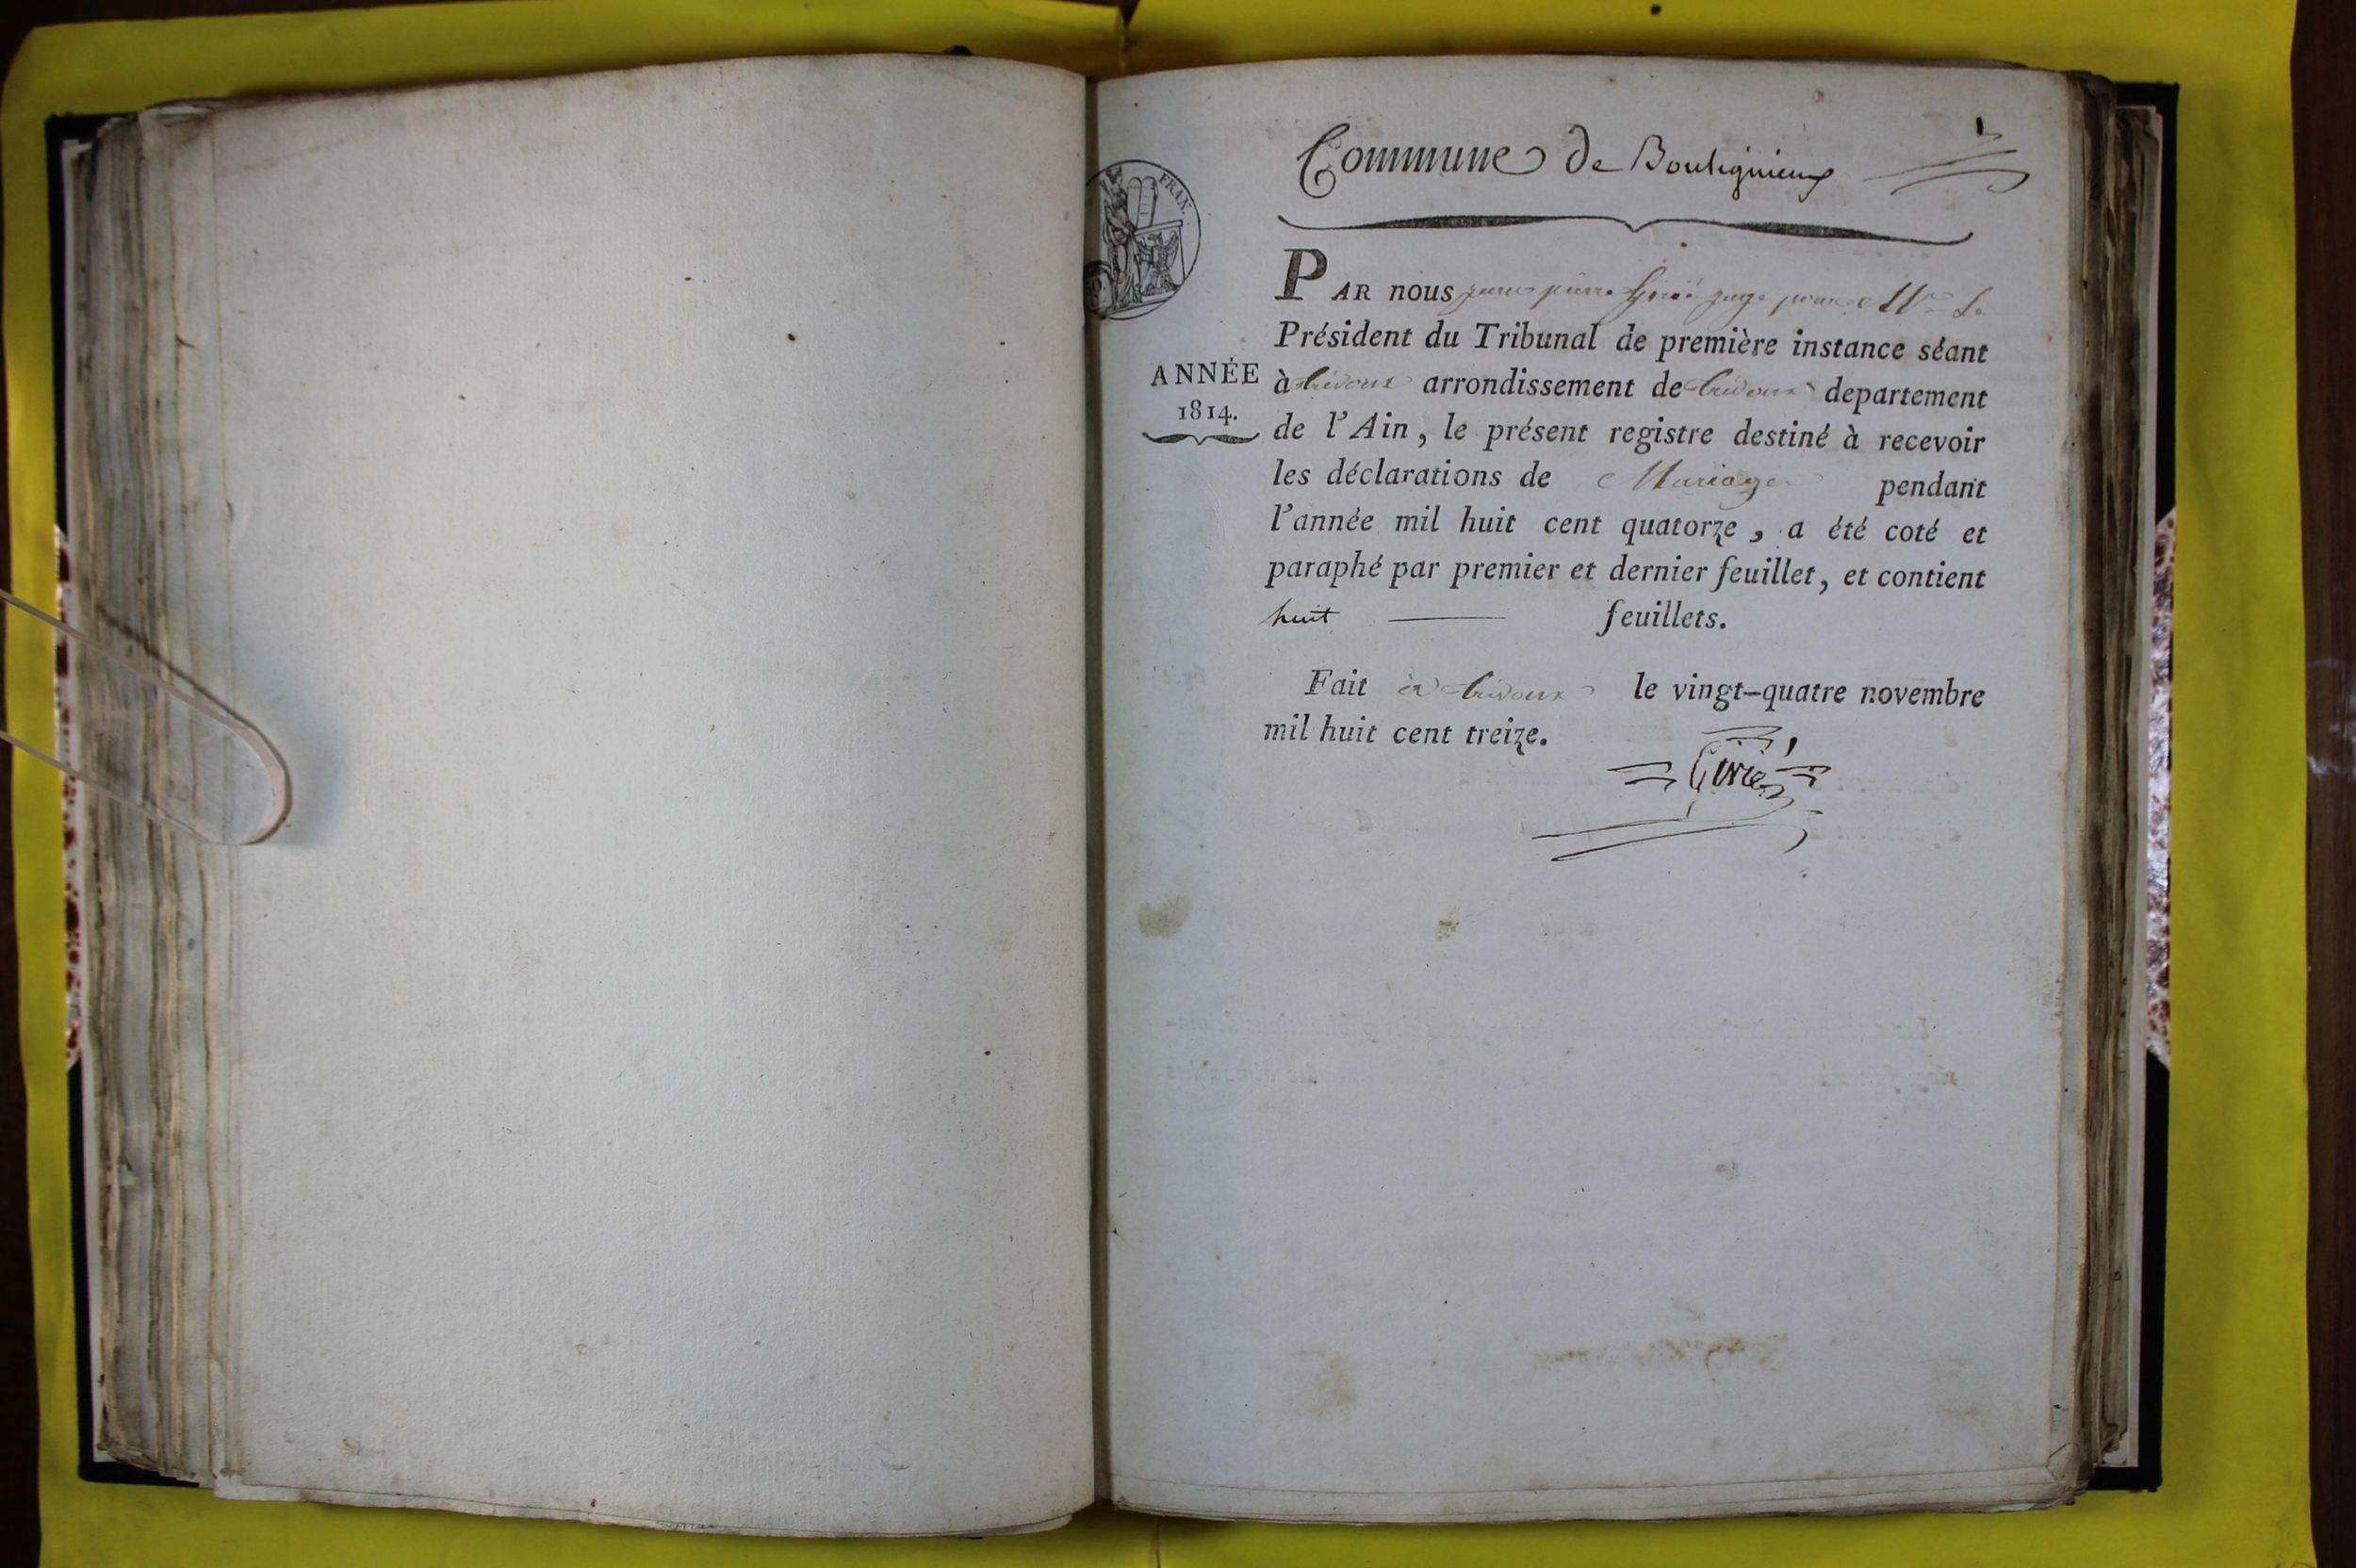 Commune de Bouligneux
1
FRAN.
PAR nous pierre juge pour Mr. Le
Président du Tribunal de première instance séant
ANNÉE
1814.
à trévoux arrondissement de trévoux departement
de l'Ain, le présent registre destiné à recevoir
les déclarations de Mariage pendant
l'année mil huit cent quatorze, a été coté et
paraphé par premier et dernier feuillet, et contient
huit feuillets.
Fait à trévoux le vingt-quatre novembre
mil huit cent treize.